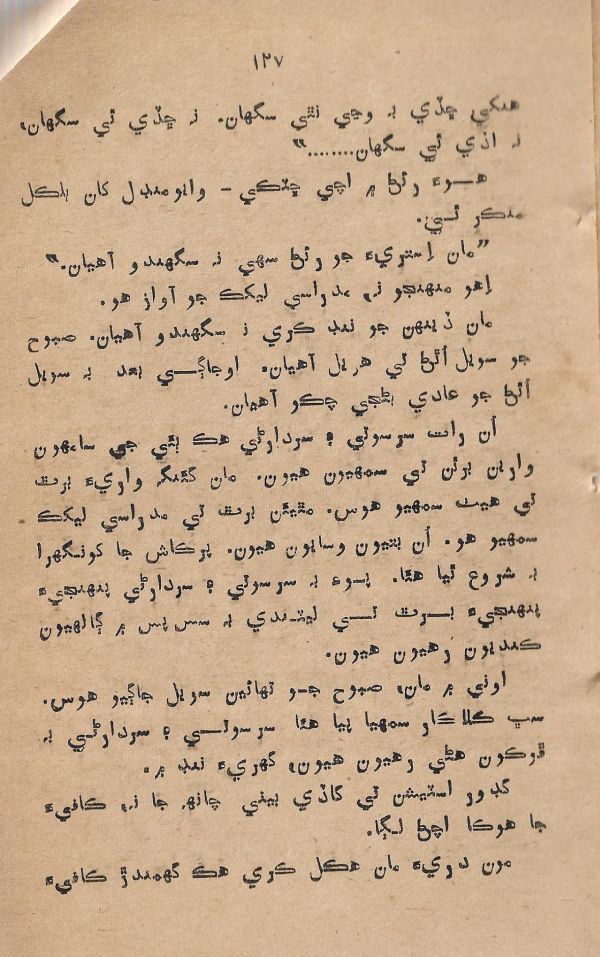 ١٢٧
هنکي ڇڏي به وڃي نٿي سگهان. نه ڇڏي ٿي سگهان،
نه اڏي ٿي سگهان........“
هوءَ رئڻ ۾ اچي ڇٽڪي – وايومنڊل کان بلڪل
منڪر ٿي.
”مان اِستريءَ جو رئڻ سهي نه سگهندو آهيان.“
اِهو منهنجو نه، مدراسي ليکڪ جو آواز هو.
مان ڏينهن جو ننڊ ڪري نه سگهندو آهيان. صبوح
جو سويل اُٿڻ تي هريل آهيان. اوجاڳي بعد به سويل
اُٿڻ جو عادي بڻجي چڪو آهيان.
اُن رات سرسوتي ۽ سردارڻي هڪ ٻئي جي سامهون
وارين برٿن تي سمهيون هيون. مان کٿنگر واريءَ برٿ
تي هيٺ سمهيو هوس. مٿينءَ برٿ تي مدراسي ليکڪ
سمهيو هو. اُن بتيون وسايون هيون. پرڪاش جا کونگهرا
به شروع ٿيا هئا. پوءِ به سرسوتي ۽ سردارڻي پنهنجيءَ
پنهنجيءَ برٿ تي ليٽندي به سس پس ۾ ڳالهيون
ڪنديون رهيون هيون.
اوٽي ۾ مان، صبوح جو تهائين سويل جاڳيو هوس.
سڀ ڪلاڪار سمهيا پيا هئا سرسوتي ۽ سردارڻي به
ڦوڪون هڻي رهيون هيون، گهريءَ ننڊ ۾.
گڊور اسٽيشن تي گاڏي بيٺي چانهه جا نه، ڪافيءَ
جا هوڪا اچڻ لڳا.
مون دريءَ مان هڪل ڪري هڪ گهمندڙ ڪافيءَ